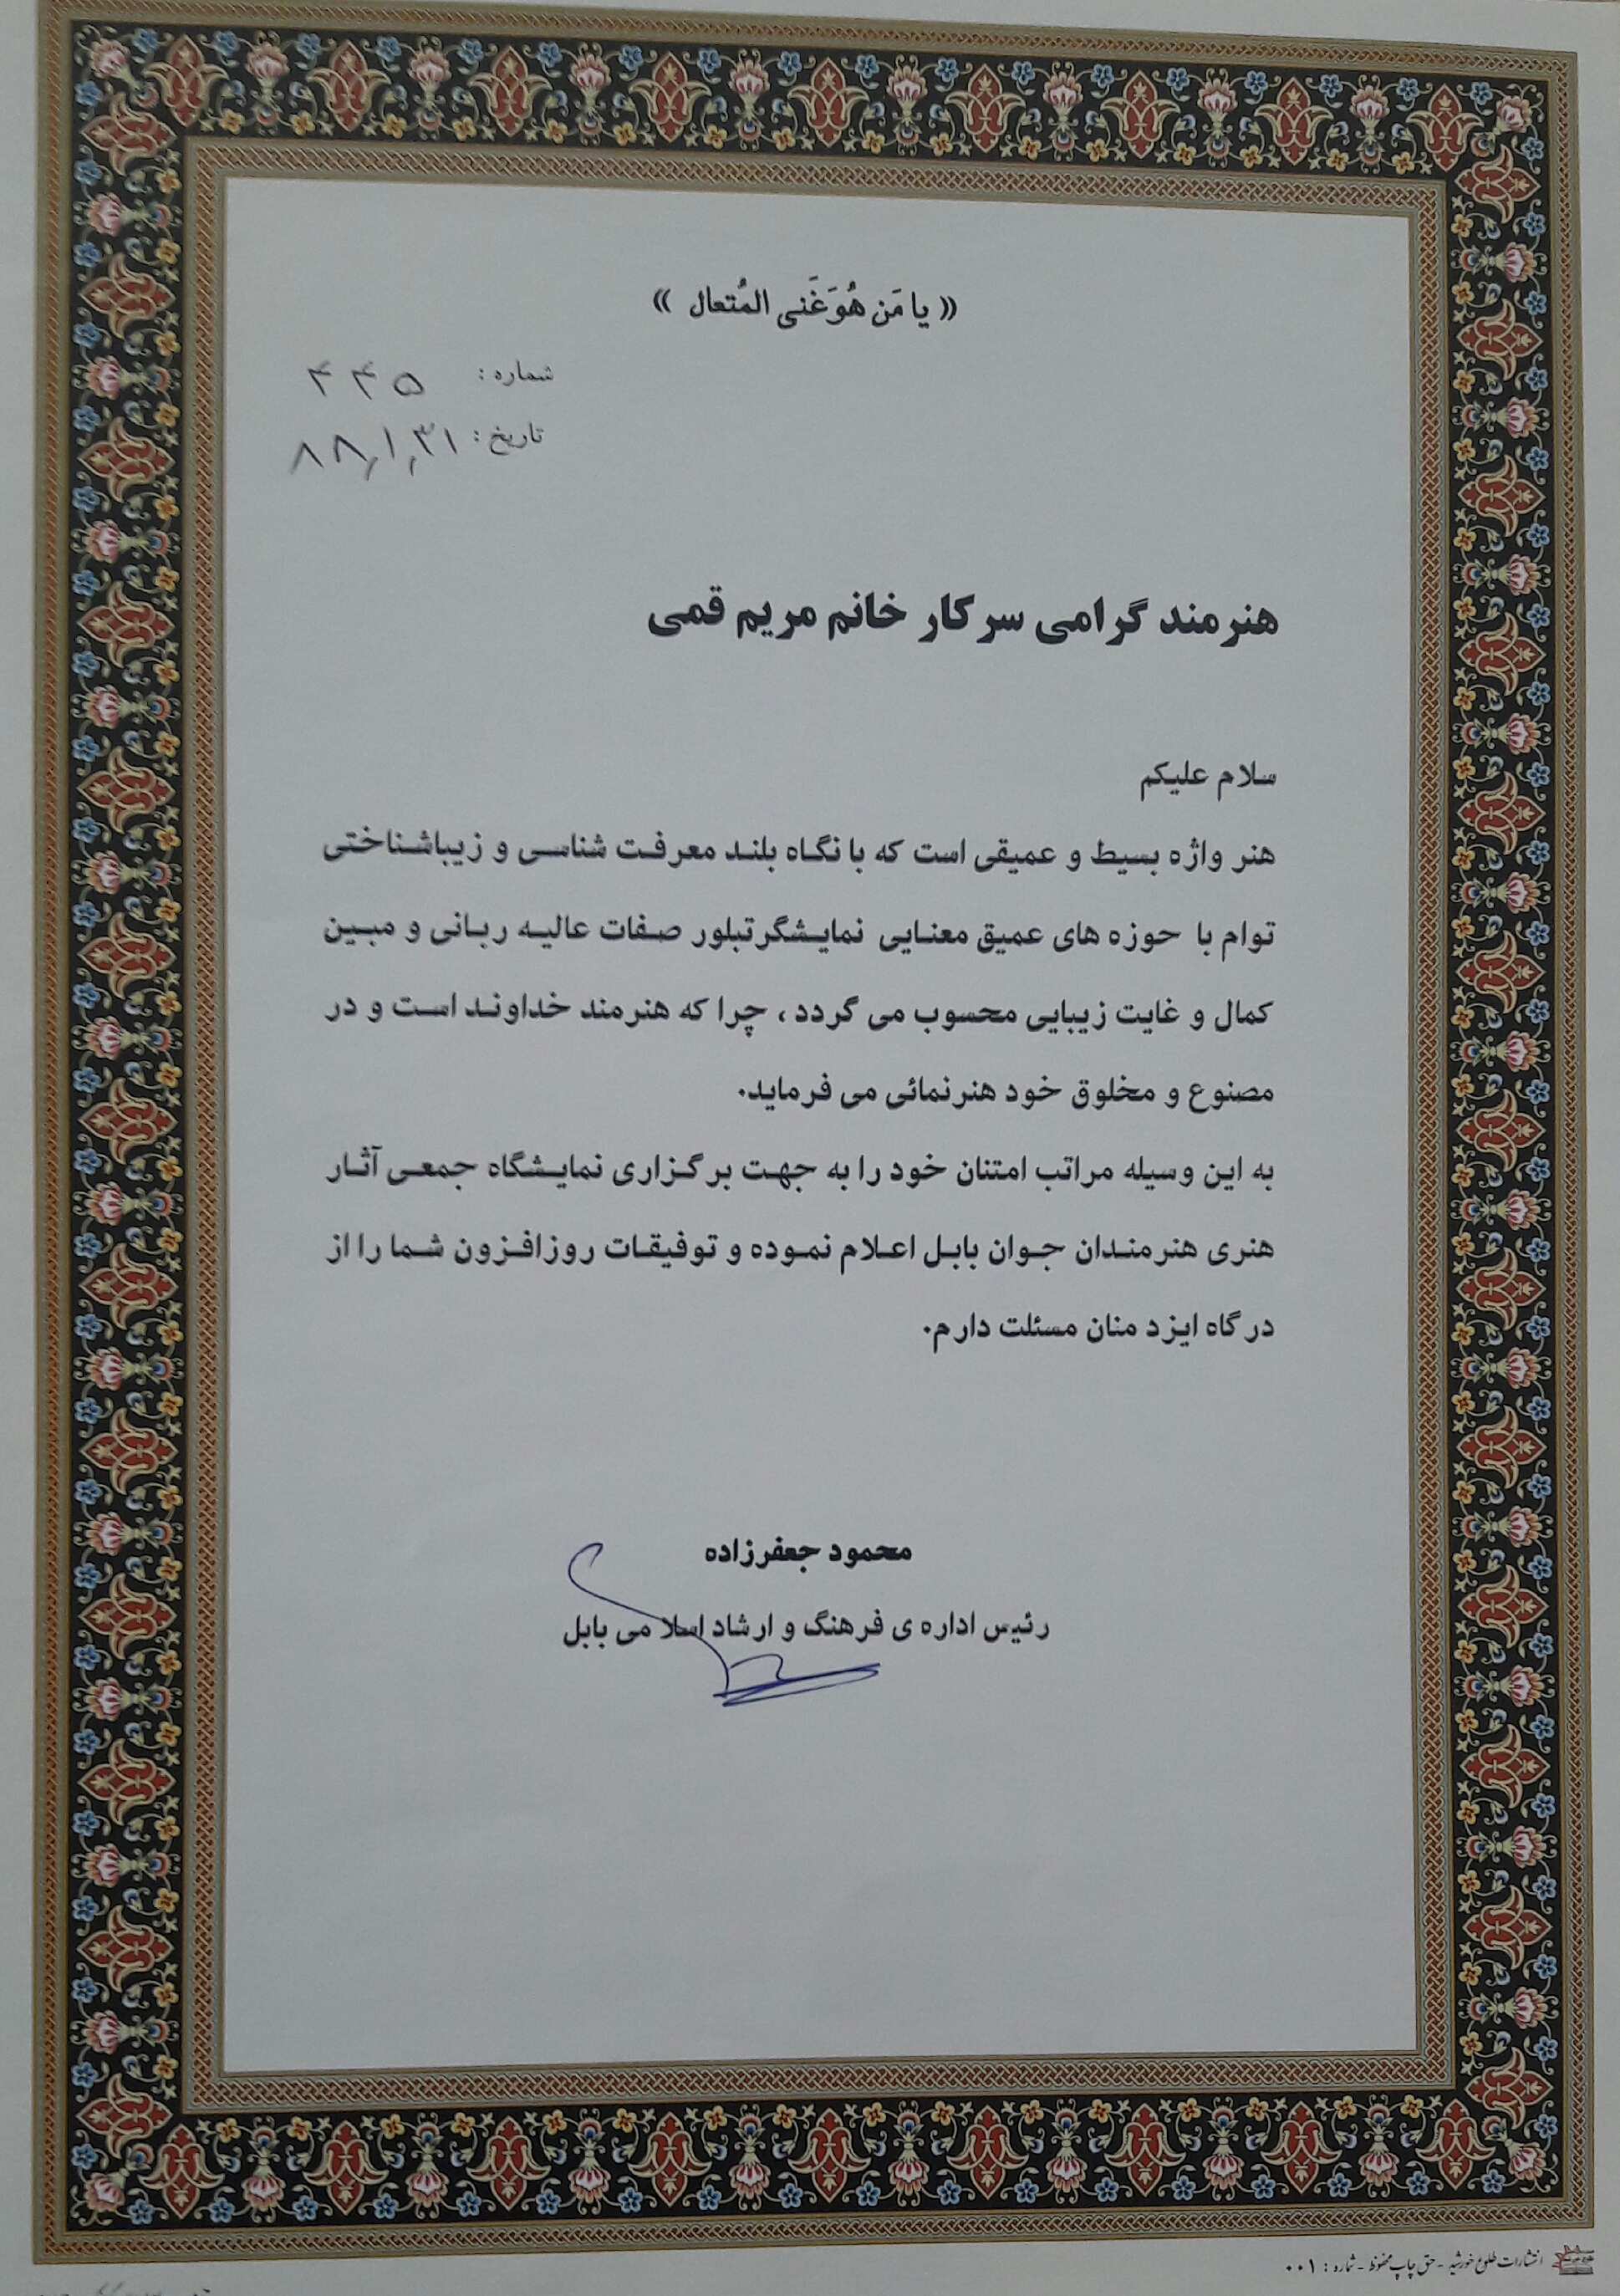 « یا مَن هُوَ غَنی المُتعال »
شماره : ۴۴۵
تاریخ : ۸۸,۱,۳۱
هنرمند گرامی سرکار خانم مریم قمی
سلام علیکم
هنر واژه بسیط و عمیقی است که با نگاه بلند معرفت شناسی و زیباشناختی
توام با حوزه های عمیق معنایی نمایشگر تبلور صفات عالیه ربانی و مبین
کمال و غایت زیبایی محسوب می گردد ، چرا که هنرمند خداوند است و در
مصنوع و مخلوق خود هنرنمائی می فرماید.
به این وسیله مراتب امتنان خود را به جهت برگزاری نمایشگاه جمعی آثار
هنری هنرمندان جوان بابل اعلام نموده و توفیقات روزافزون شما را از
درگاه ایزد منان مسئلت دارم.
محمود جعفرزاده
رئیس اداره ی فرهنگ و ارشاد اسلامی بابل
انتشارات طلوع خورشید - حق چاپ محفوظ - شماره : ۰۰۱